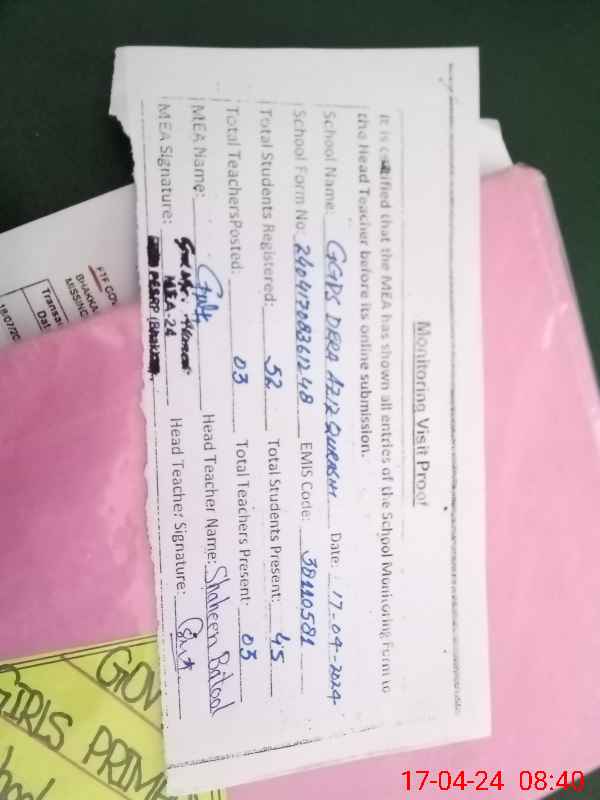 Monitoring Visit Proof
It is certified that the MEA has shown all entries of the School Monitoring Form to
the Head Teacher before its online submission.
School Name: GGPS DERA AZIZ QURASHI Date: 17-04-2024
School Form No: EMIS Code: 38110581
Total Students Registered: 52 Total Students Present: 45
Total TeachersPosted: 03 Total Teachers Present: 03
MEA Name: Head Teacher Name: Shaheen Batool
MEA-24
MEA Signature: PESRP (Bhakkar) Head Teacher Signature:
FTF GOV
BHAKKA
MISSING
Transa
Dat
18/07/20
GOV
GIRLS PRIM
hool
17-04-24 08:40